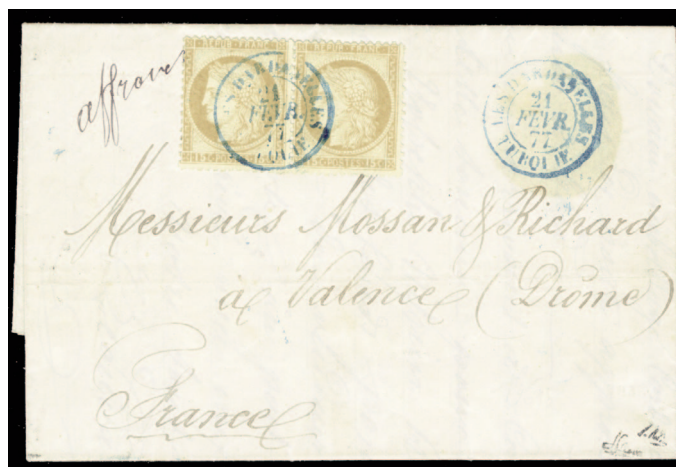 affranchi
REPUB. FRANC. REPUB. FRANC.
LES DARDANELLES
21
FEVR.
77
TURQUIE
15C POSTES 15C
LES DARDANELLES
21
FEVR.
77
TURQUIE
Messieurs Mossan & Richard
à Valence (Drôme)
France